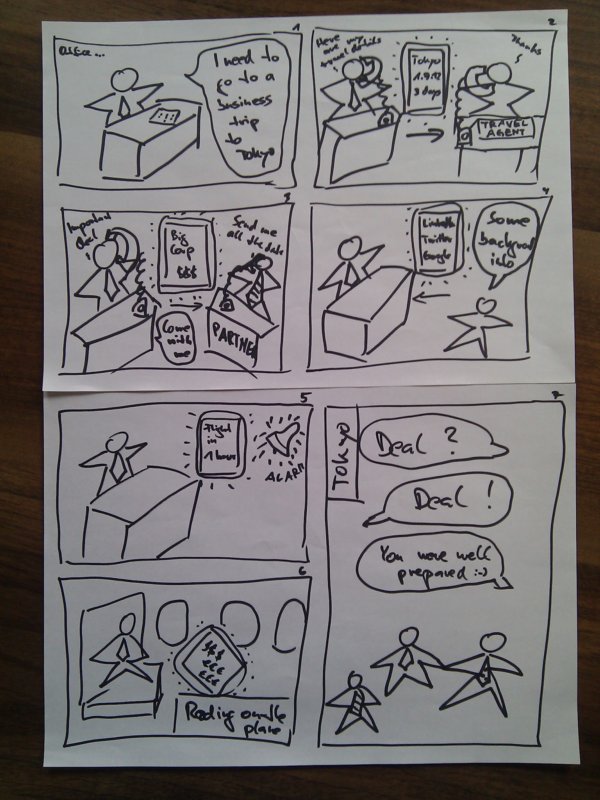 1
Office...
I need to
go to a
business
trip
to
Tokyo
2
Here are my
travel details
Tokyo
1.9.12
3 days
Thanks
TRAVEL
AGENT
3
Important
Deal!
Big
Corp
$$$
Send me
all the data
Come
with
me
PARTNER
4
LinkedIn
Twitter
Google
Some
backgroud
info
5
Flight
in
1 hour
ALARM
6
$$$
€€€
£££
Reading on the
plane
7
TOKYO
Deal ?
Deal !
You were well
prepared :-)